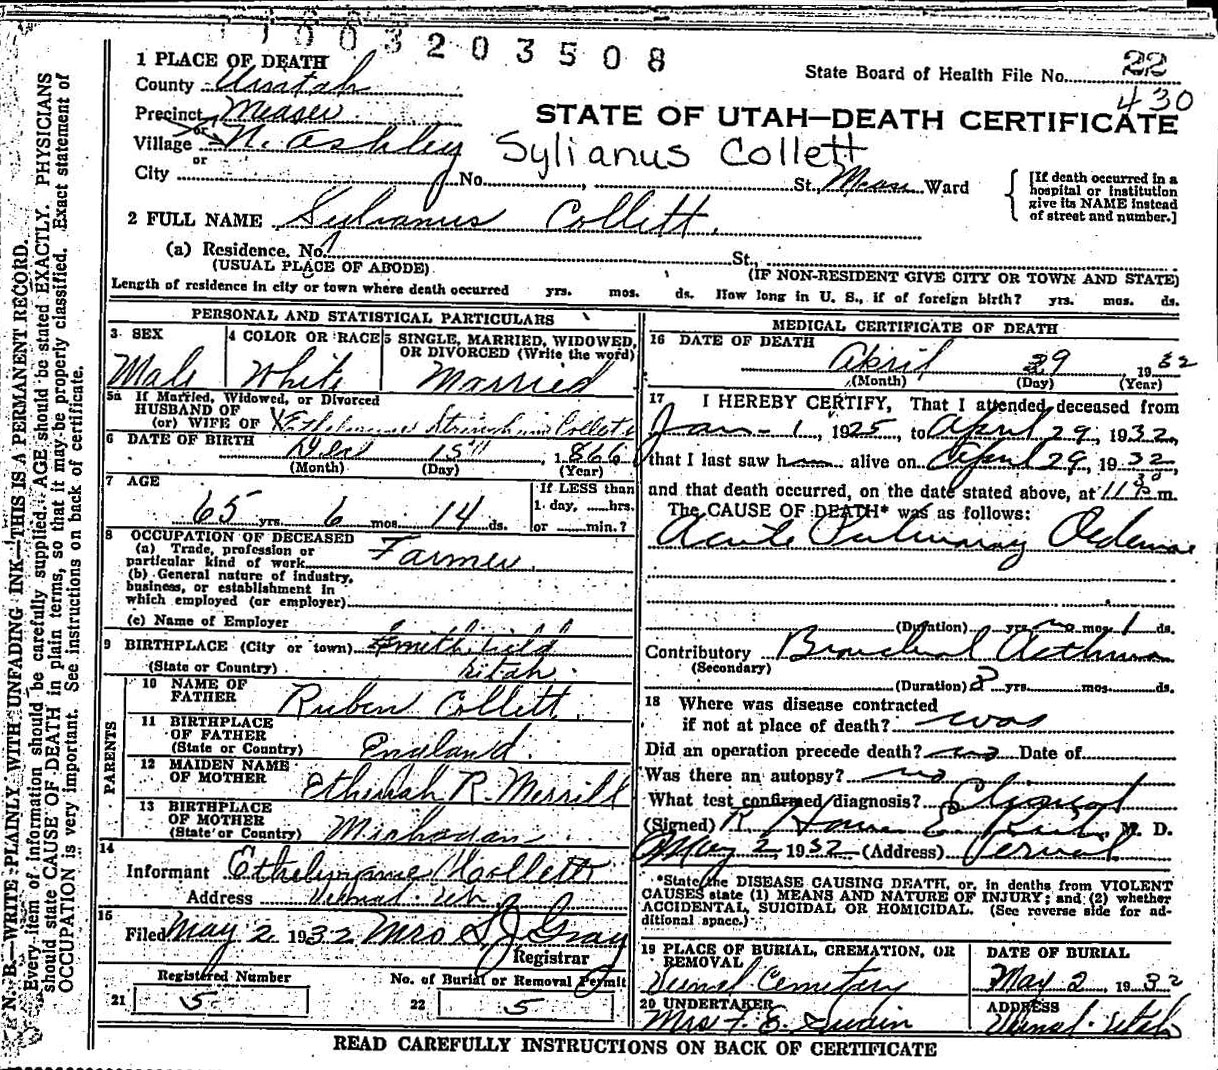 7003203508
1 PLACE OF DEATH
State Board of Health File No. 22
430
County Uintah
Precinct Maeser
STATE OF UTAH—DEATH CERTIFICATE
or
Village N. Ashley
Sylianus Collett
or
City No. St. Ward
[If death occurred in a hospital or institution give its NAME instead of street and number.]
2 FULL NAME Sylvanus Collett.
(a) Residence. No. St.,
(USUAL PLACE OF ABODE) (IF NON-RESIDENT GIVE CITY OR TOWN AND STATE)
Length of residence in city or town where death occurred yrs. mos. ds. How long in U. S., if of foreign birth? yrs. mos. ds.
PERSONAL AND STATISTICAL PARTICULARS
3 SEX
Male
4 COLOR OR RACE
White
5 SINGLE, MARRIED, WIDOWED, OR DIVORCED (Write the word)
Married
5a If Married, Widowed, or Divorced
HUSBAND OF
(or) WIFE OF Collett
6 DATE OF BIRTH
15th, 1866
(Month) (Day) (Year)
7 AGE
65 yrs. 6 mos. 14 ds.
If LESS than
1 day, hrs.
or min.?
8 OCCUPATION OF DECEASED
(a) Trade, profession or
particular kind of work Farmer.
(b) General nature of industry,
business, or establishment in
which employed (or employer)
(c) Name of Employer
9 BIRTHPLACE (City or town) Smithfield
(State or Country) Utah.
PARENTS
10 NAME OF FATHER Ruben Collett
11 BIRTHPLACE OF FATHER (State or Country) England.
12 MAIDEN NAME OF MOTHER R. Merrill
13 BIRTHPLACE OF MOTHER (State or Country) Michagan.
14
Informant Collett
Address Vernal. Utah
15
Filed May 2 1932 Mrs S J Gray
Registrar
Registered Number
21 5
No. of Burial or Removal Permit
22 5
MEDICAL CERTIFICATE OF DEATH
16 DATE OF DEATH
April 29 1932
(Month) (Day) (Year)
17 I HEREBY CERTIFY, That I attended deceased from
Jan - 1, 1925, to April 29, 1932,
that I last saw h alive on April 29, 1932,
and that death occurred, on the date stated above, at 11 30 P.m.
The CAUSE OF DEATH* was as follows:
Acute Pulmonary Oedema
(Duration) yrs. no mos. 1 ds.
Contributory Bronchial Asthma
(Secondary)
(Duration) 8 yrs. mos. ds.
18 Where was disease contracted
if not at place of death? was
Did an operation precede death? no Date of
Was there an autopsy? no
What test confirmed diagnosis? Clinical
(Signed) R. M. D.
May 2, 1932 (Address) Vernal
*State the DISEASE CAUSING DEATH, or, in deaths from VIOLENT
CAUSES state (1) MEANS AND NATURE OF INJURY; and (2) whether
ACCIDENTAL, SUICIDAL OR HOMICIDAL. (See reverse side for ad-
ditional space.)
19 PLACE OF BURIAL, CREMATION, OR REMOVAL
Vernal Cemetary
DATE OF BURIAL
May 2, 1932
20 UNDERTAKER
Mrs F. E. Swain
ADDRESS
Vernal. Utah
READ CAREFULLY INSTRUCTIONS ON BACK OF CERTIFICATE
N. B.—WRITE PLAINLY WITH UNFADING INK—THIS IS A PERMANENT RECORD.
Every item of information should be carefully supplied. AGE should be stated EXACTLY. PHYSICIANS
should state CAUSE OF DEATH in plain terms, so that it may be properly classified. Exact statement of
OCCUPATION is very important. See instructions on back of certificate.